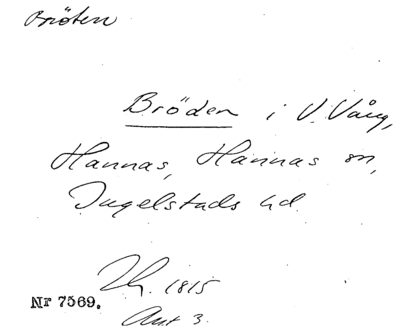 Bröten
Bröden i V. Vång,
Hannas, Hannas sn,
Ingelstads hd.
1815
Nr 7569.
Akt 3.